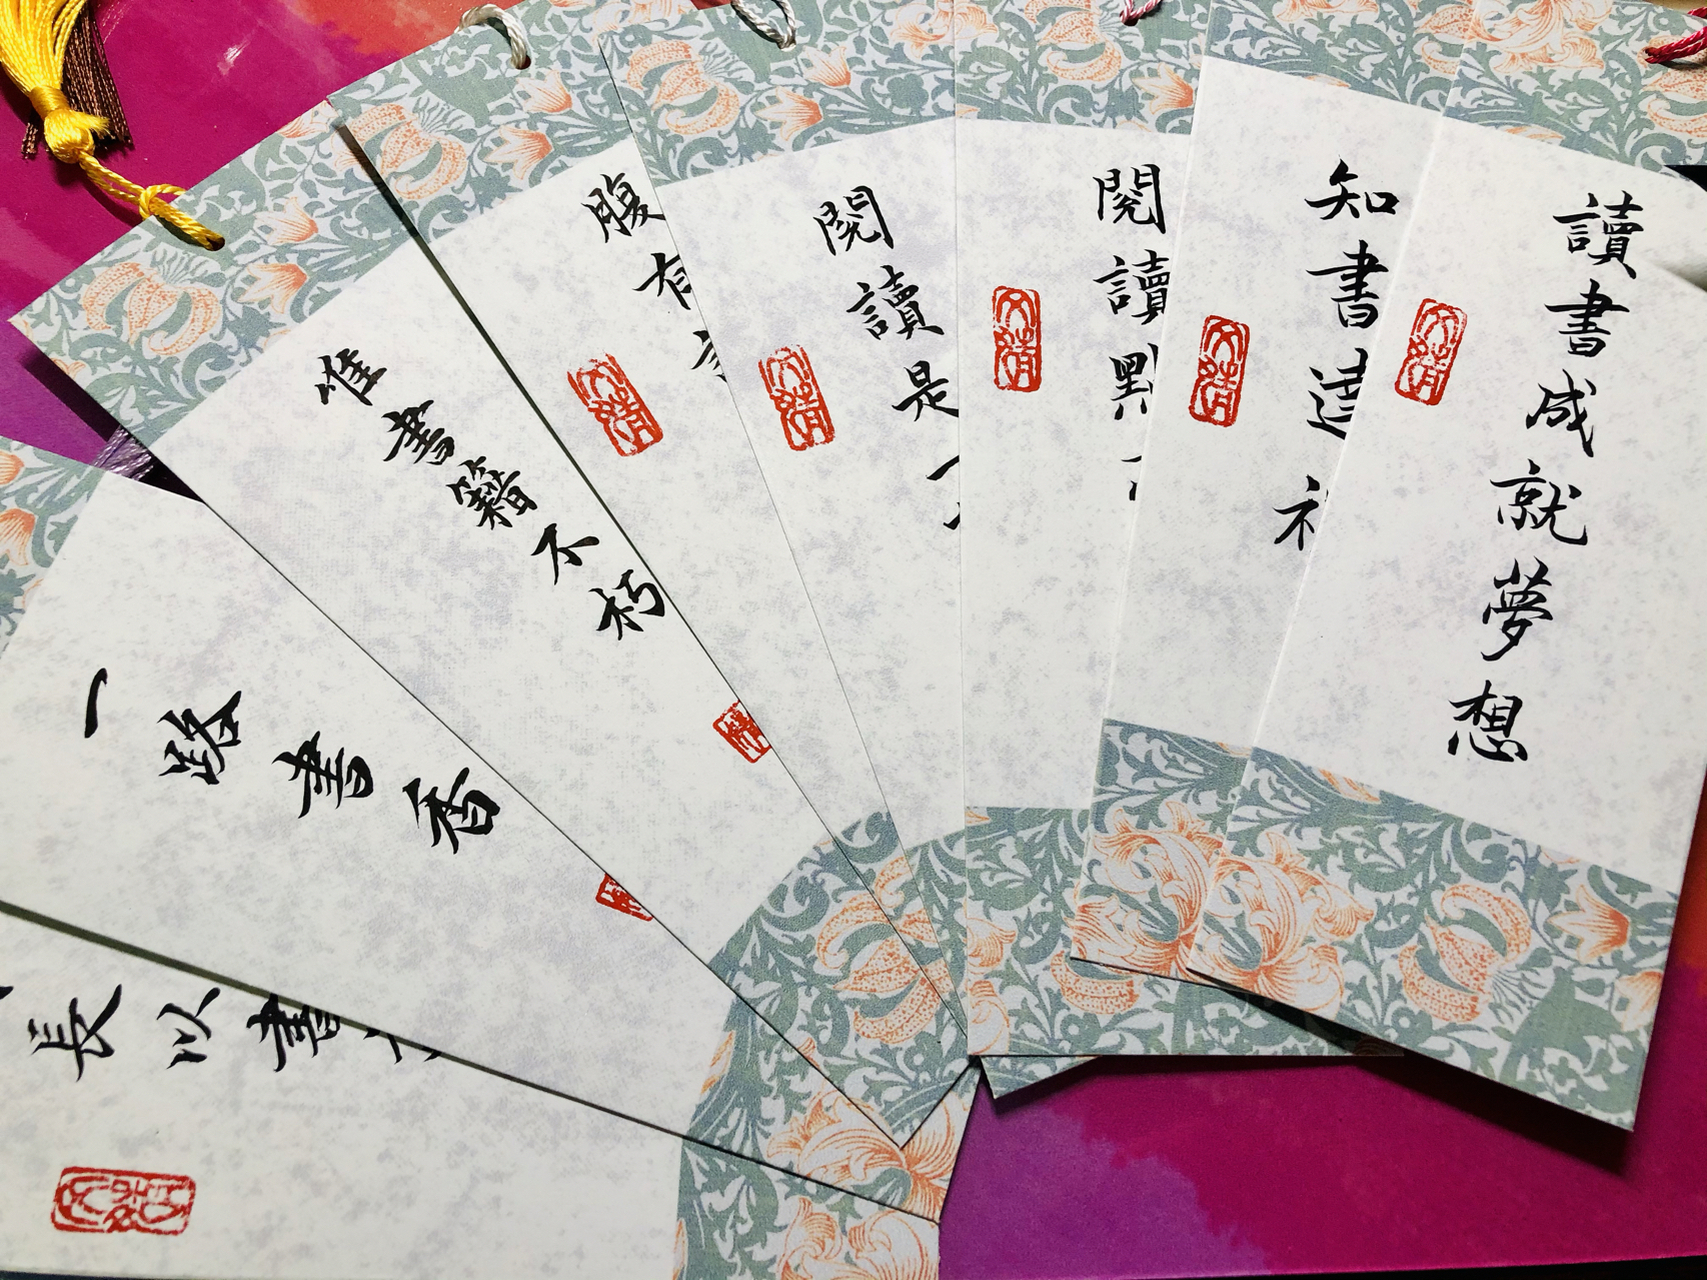 讀書成就夢想
知書達
閱讀點
閱讀是
腹有
惟書籍不朽
一路書香
長以書